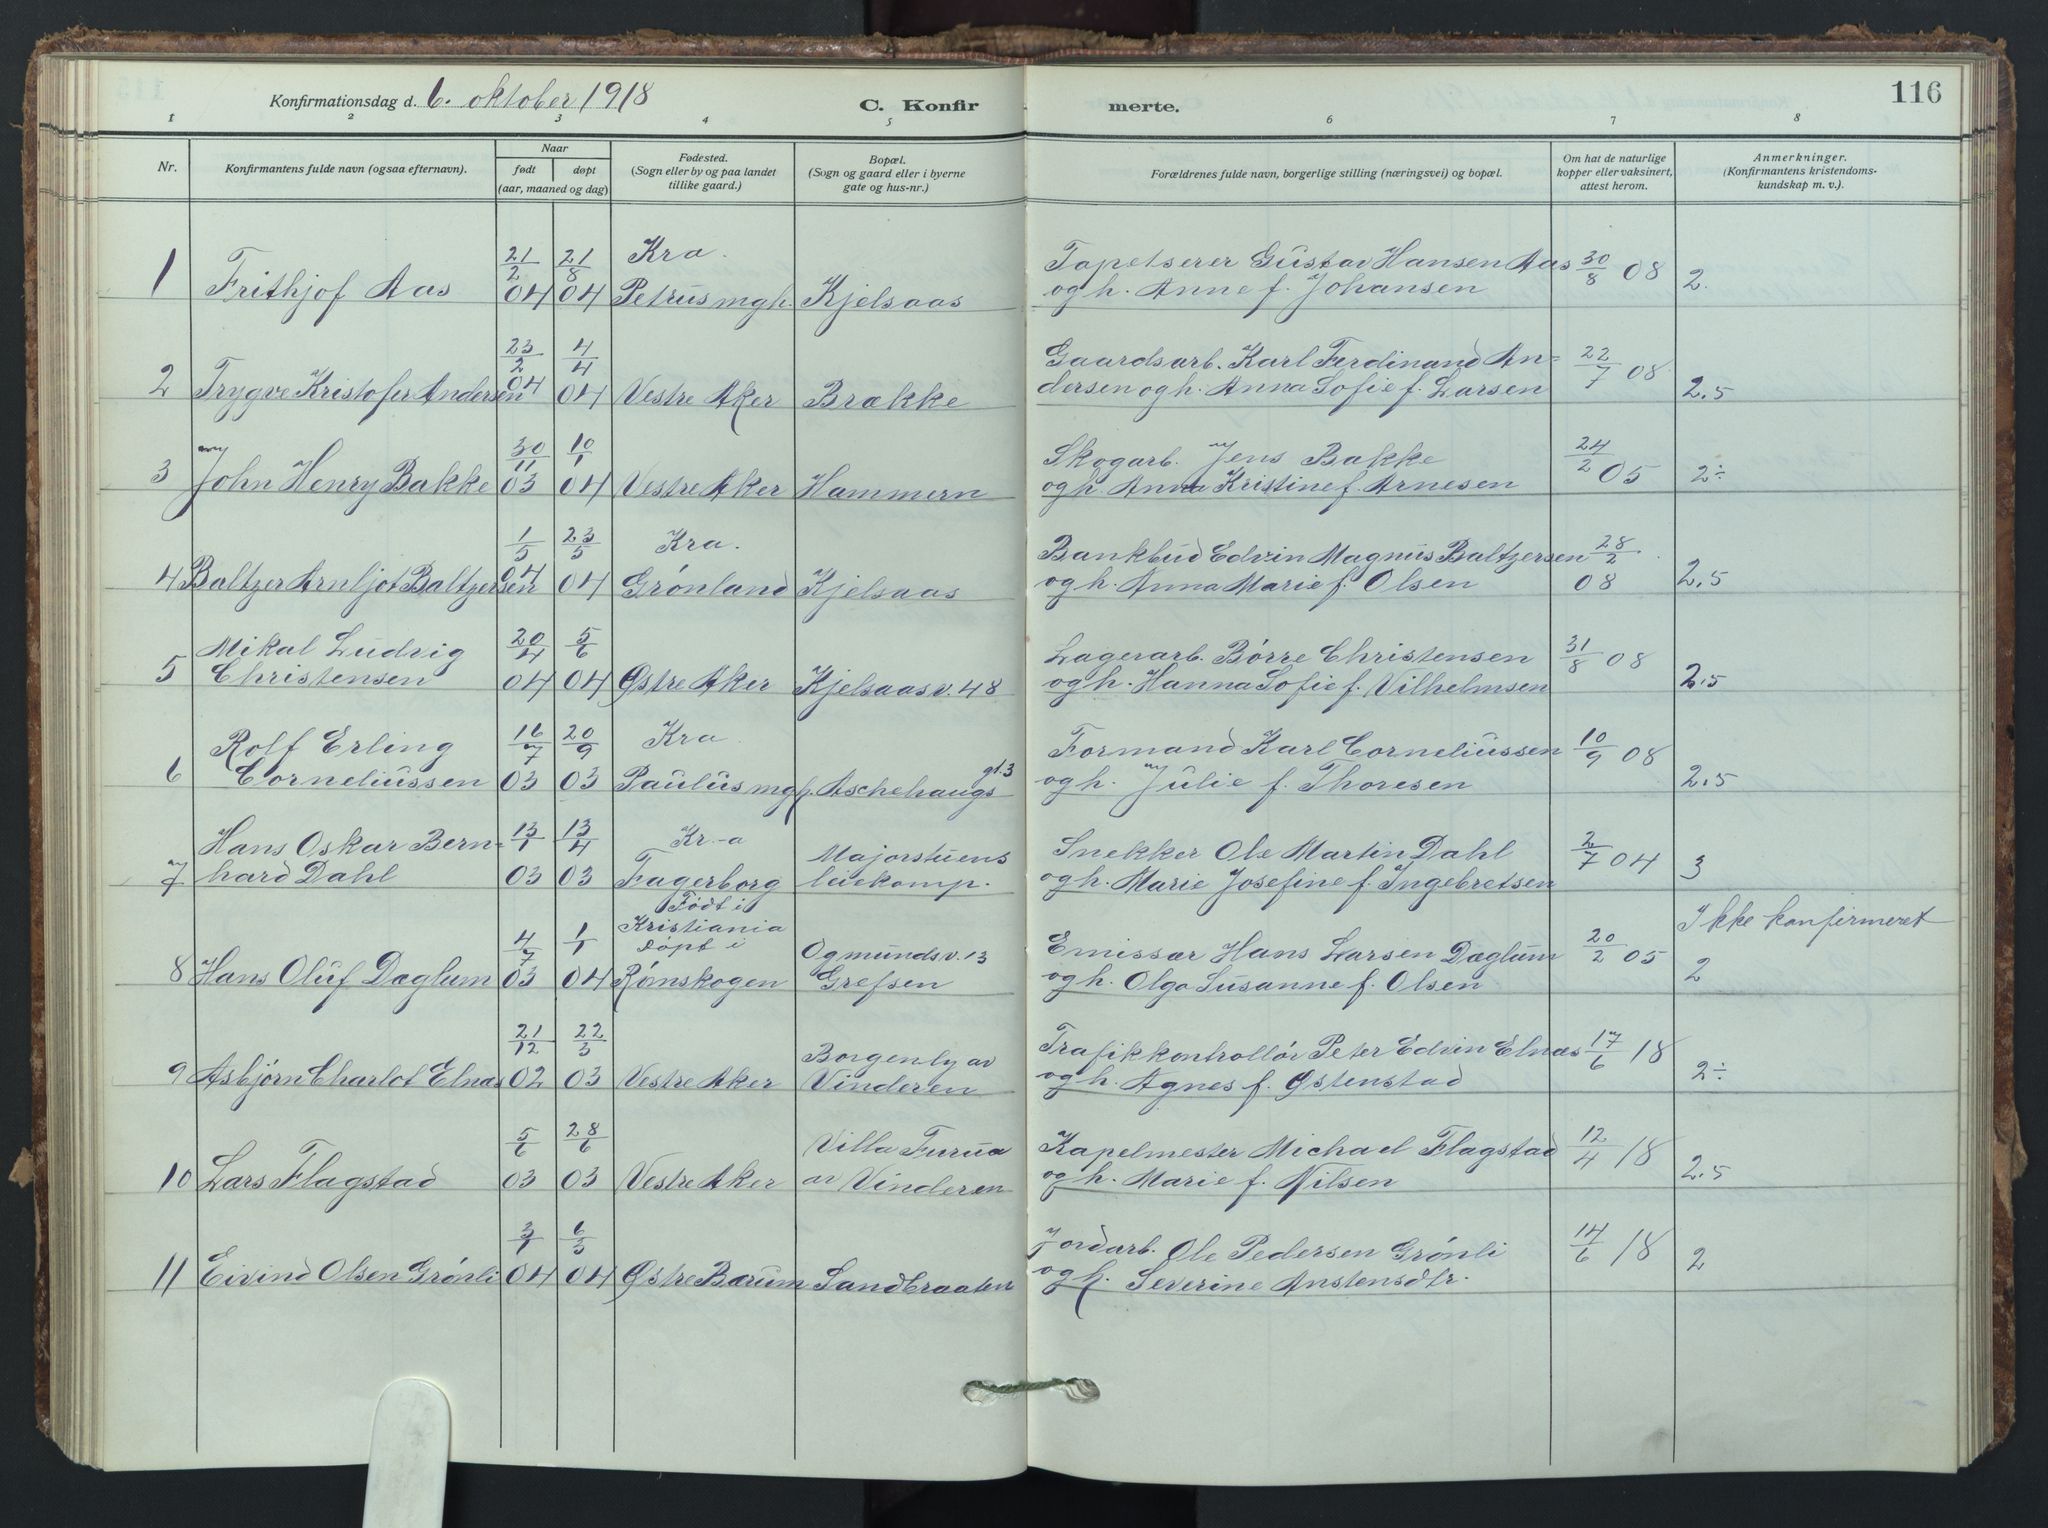 Konfirmationsdag d. 6. oktober 1918 C. Konfir merte. 116
1 2 3 4 5 6 7 8
Nr. Konfirmantens fulde navn (ogsaa efternavn). Naar født døpt (aar, maaned og dag) Fødested. (Sogn eller by og paa landet tillike gaard.) Bopæl. (Sogn og gaard eller i byerne gate og hus-nr.) Forældrenes fulde navn, borgerlige stilling (næringsvei) og bopæl. Om hat de naturlige kopper eller vaksinert, attest herom. Anmerkninger. (Konfirmantens kristendomskundskap m. v.).
21/2 21/8 Kra. Tapetserer Gustav Hansen Aas 30/8 08
1 Frithjof Aas 04 04 Petrus mgh. Kjelsaas og h. Anne f. Johansen 2.
23/2 4/4 Gaardsarb. Karl Ferdinand An= 22/7 08
2 Trygve Kristofer Andersen 04 04 Vestre Aker Brække dersen og h. Anna Sofie f. Larsen 2.5
30/11 10/1 Skogarb. Jens Bakke 24/2 05
3 John Henry Bakke 03 04 Vestre Aker Hammern og h. Anna Kristine f. Arnesen 2÷
1/5 23/5 Kra. Bankbud Edvin Magnus Baltzersen 28/2
4 Baltzer Arnljot Baltzersen 04 04 Grønland Kjelsaas og h. Anna Marie f. Olsen 08 2.5
Mikal Ludvig 20/4 5/6 Lagerarb. Børre Christensen 31/8 08
5 Christensen 04 04 Østre Aker Kjelsaasv. 48 og h. Hanna Sofie f. Vilhelmsen 2.5
Rolf Erling 16/7 20/9 Kra Formand Karl Corneliussen 10/9 08
6 Corneliussen 03 03 Paulus mgh. Aschehaugs gt. 3 og h. Julie f. Thoresen 2.5
Hans Oskar Bern= 13/1 13/4 Kr-a Majorstuens Snekker Ole Martin Dahl 2/7 04
7 hard Dahl 03 03 Fagerborg leiekomp. og h. Marie Josefine f. Ingebretsen 3
Født i
Kristiania Ikke konfirmeret
4/7 1/1 døpt i Ogmundsv. 13 Emissær Hans Larsen Dæglum 20/2 05
8 Hans Oluf Dæglum 03 04 Rømskogen Grefsen og h. Olga Susanne f. Olsen 2
21/12 22/3 Borgenly av Trafikkontrollør Peter Edvin Elnas 17/6 18
9 Asbjørn Charlot Elnas 02 03 Vestre Aker Vinderen og h. Agnes f. Østenstad 2÷
5/6 28/6 Villa Furua Kapelmester Michael Flagstad 12/4 18
10 Lars Flagstad 03 03 Vestre Aker av Vinderen og h. Marie f. Nilsen 2.5
3/1 6/3 Jordarb. Ole Pedersen Grønli 14/6 18
11 Eivind Olsen Grønli 04 04 Østre Bærum Sandbraaten og h. Severine Anstensdtr. 2